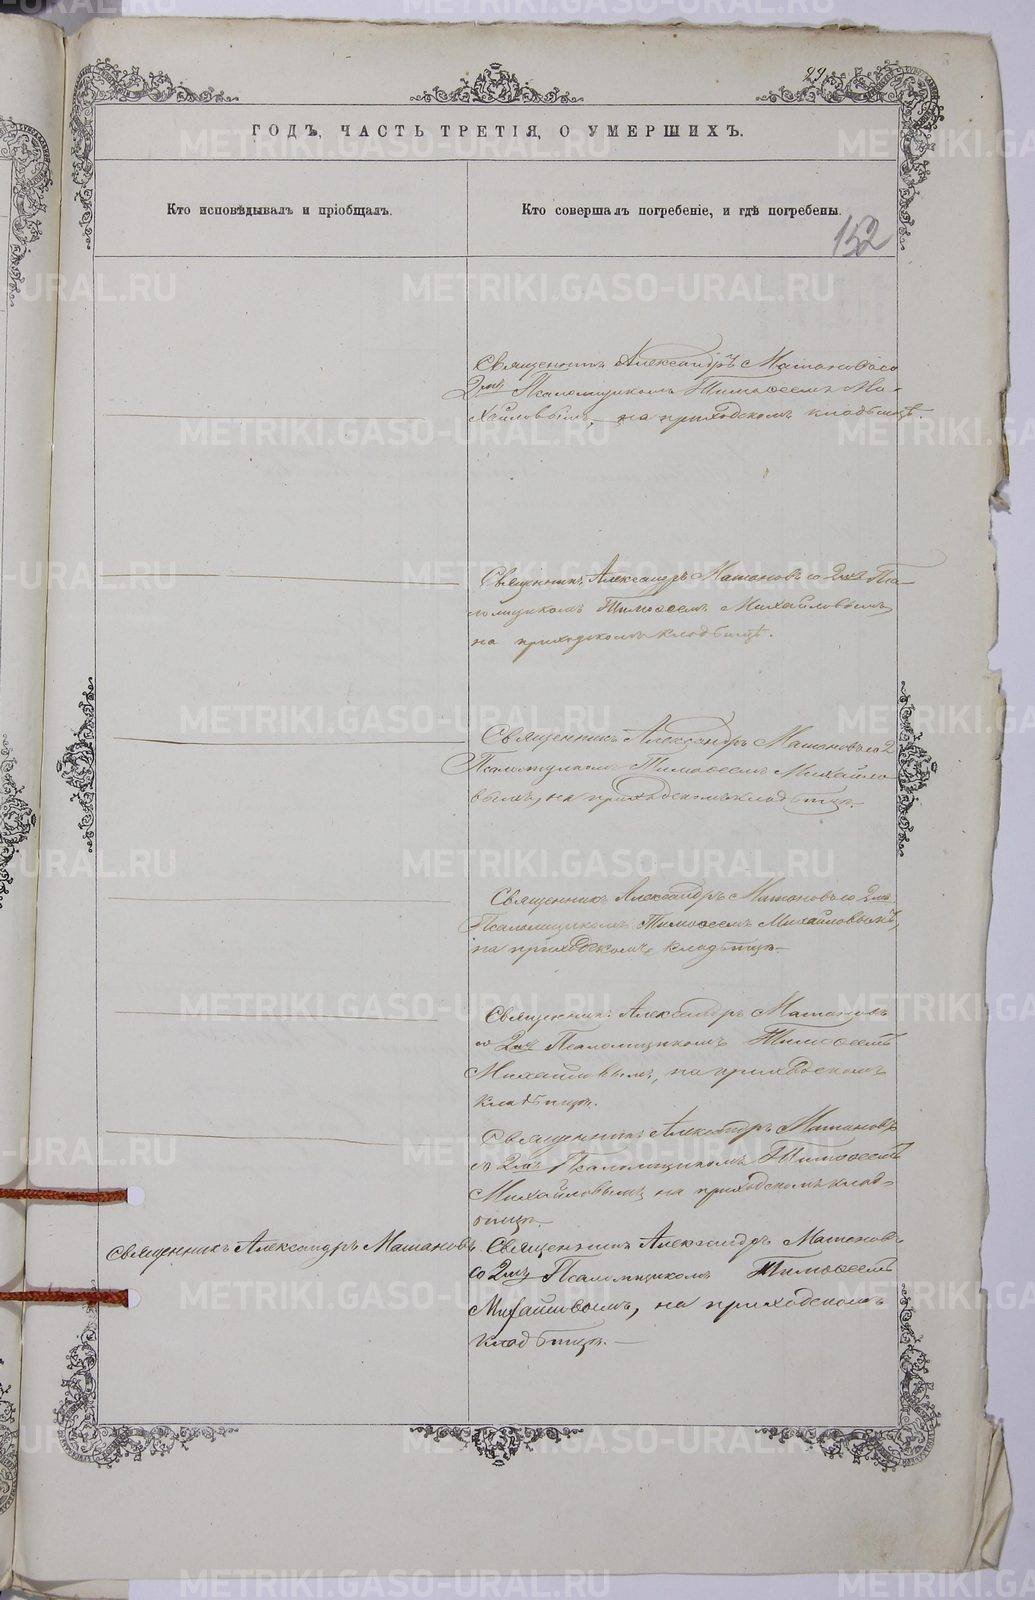 29.
ГОДЪ, ЧАСТЬ ТРЕТІЯ, О УМЕРШИХЪ.
Кто исповѣдывалъ и пріобщалъ.
Кто совершалъ погребеніе, и гдѣ погребены.
152
Священникъ Александръ Матановъ со
2мъ Псаломщикомъ Тимоѳеемъ Ми-
хайловымъ, на приходскомъ кладбищѣ.
Священникъ Александръ Матановъ со 2мъ Пса-
ломщикомъ Тимоѳеемъ Михайловымъ
на приходскомъ кладбищѣ.
Священникъ Александръ Матановъ со 2
Псаломщикомъ Тимоѳеемъ Михайло
вымъ, на приходскомъ кладбищѣ.
Священникъ Александръ Матановъ со 2мъ
Псаломщикомъ Тимоѳеемъ Михайловымъ,
на приходскомъ кладбищѣ.
Священникъ Александръ Матановъ
со 2мъ Псаломщикомъ Тимоѳеемъ
Михайловымъ, на приходскомъ
кладбищѣ.
Священникъ Александръ Матановъ
со 2мъ Псаломщикомъ Тимоѳеемъ
Михайловымъ на приходскомъ клад-
бищѣ.
Священникъ Александръ Матановъ.
Священникъ Александръ Матановъ
со 2мъ Псаломщикомъ Тимоѳеемъ
Михайловымъ, на приходскомъ
кладбищѣ.
METRIKI.GASO-URAL.RU